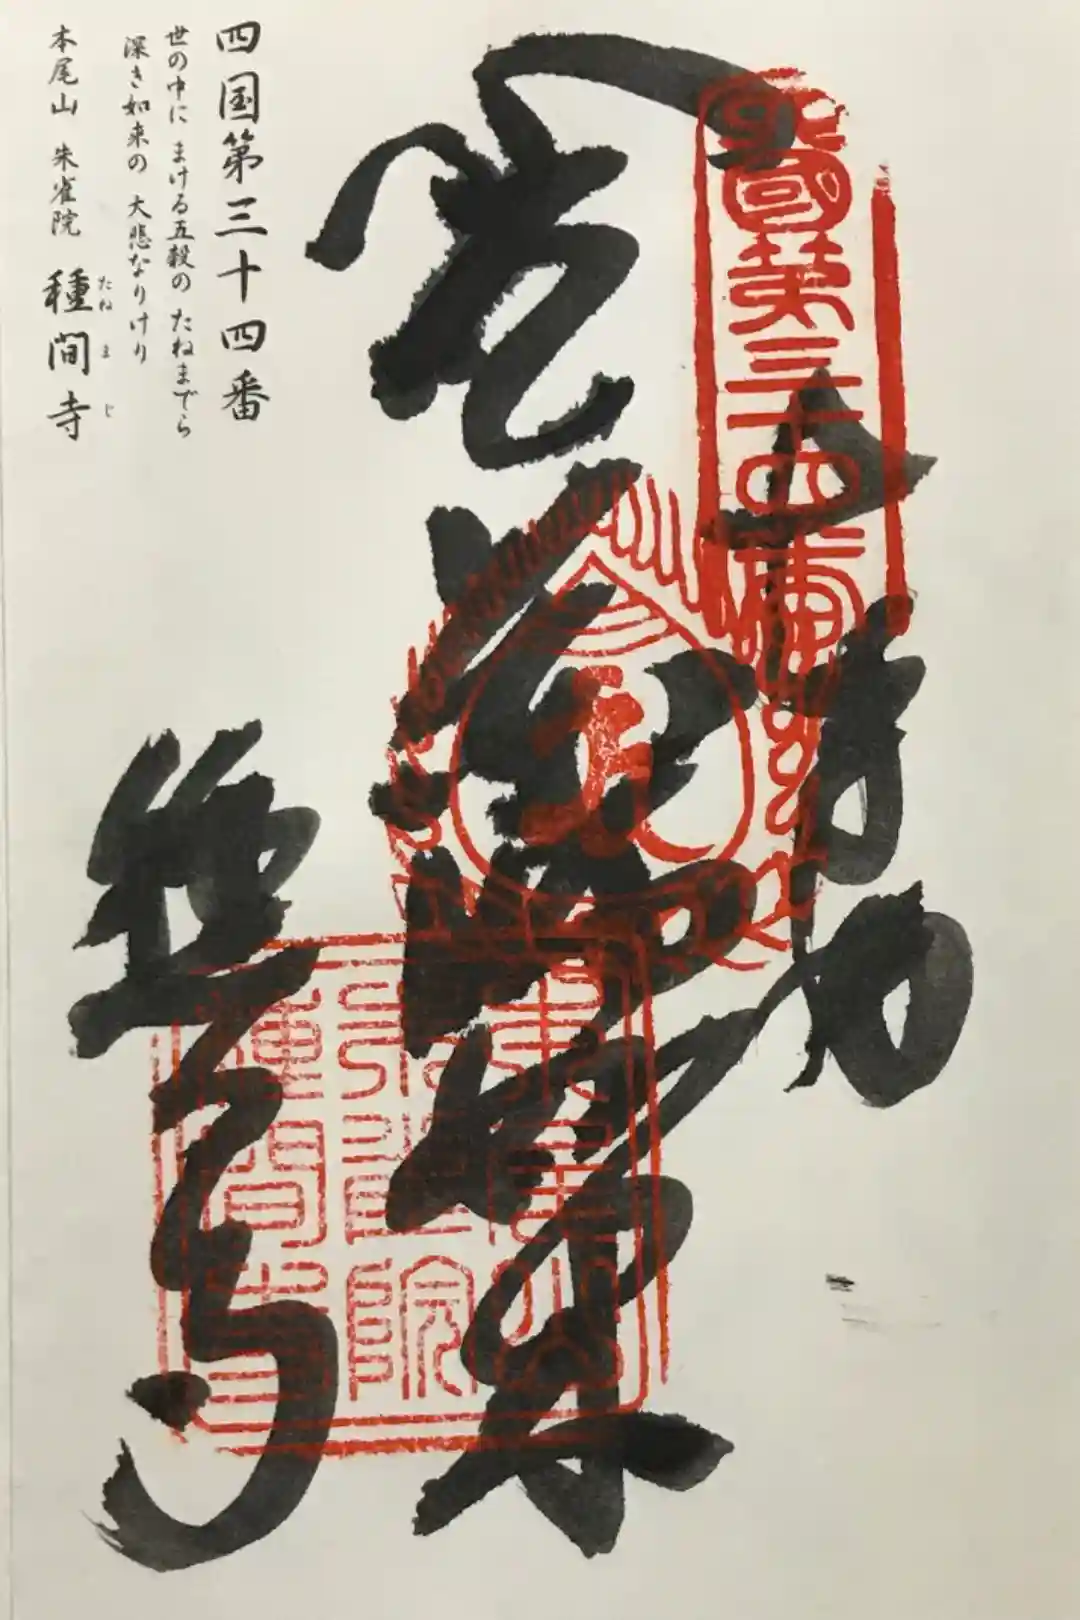 四國第三十四番
薬師如来
本尾山
朱雀院
種間寺
種間寺
四国第三十四番
世の中に まける五穀の たねまでら
深き如来の 大悲なりけり
たねまじ
本尾山 朱雀院 種間寺